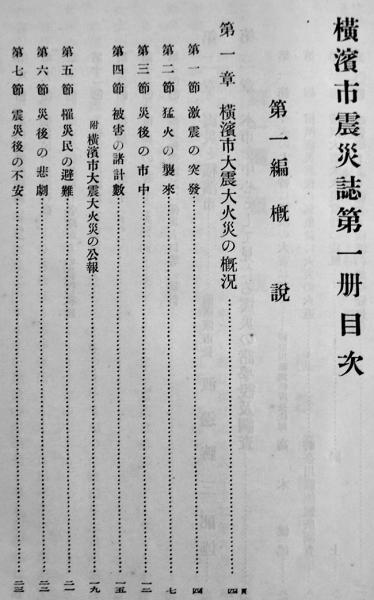 橫濱市震災誌第一册目次
第一編 槪說
第一章 橫濱市大震大火災の槪況……四頁
第一節 激震の突發……四
第二節 猛火の襲來……七
第三節 災後の市中……一二
第四節 被害の諸計數……一五
附 橫濱市大震大火災の公報……一九
第五節 罹災民の避難……二一
第六節 災後の悲劇……二三
第七節 震災後の不安……二三